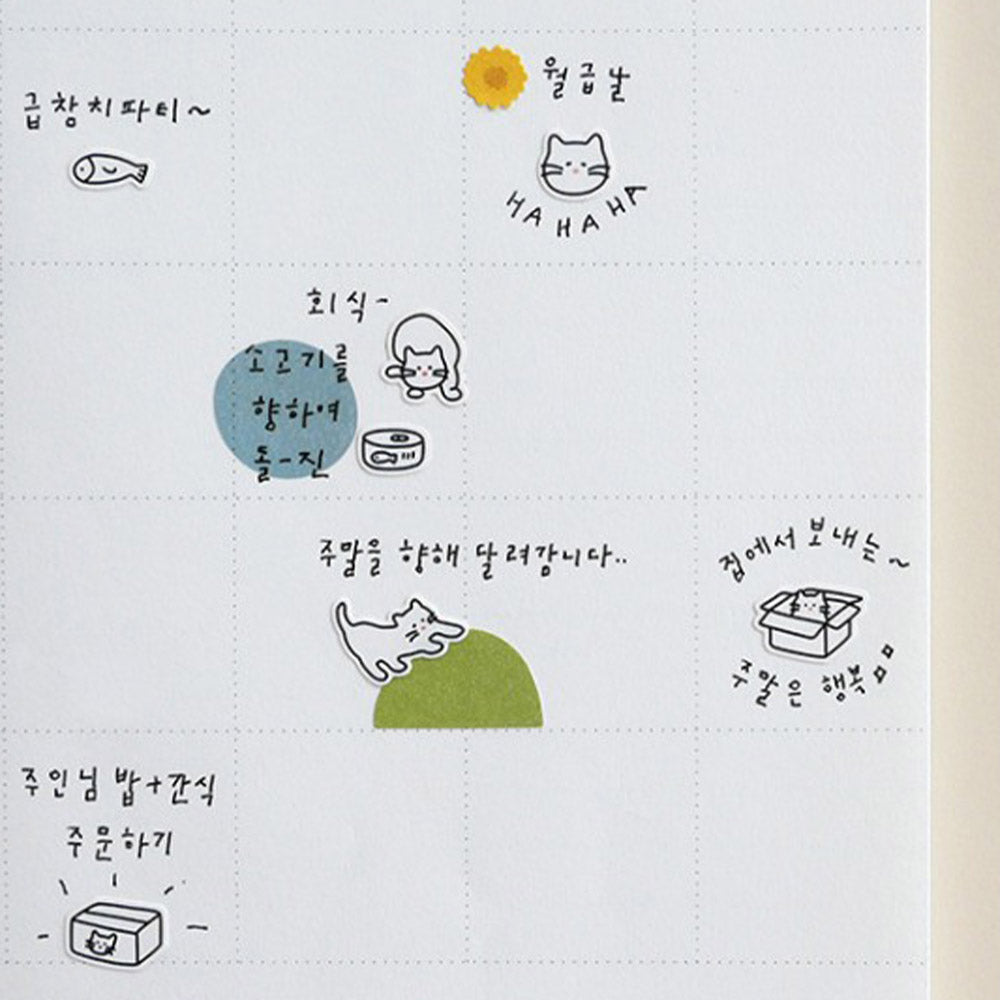 급 창치파티~
월급날
HAHAHA
회식-
소고기를
향하여
돌-진
주말을 향해 달려갑니다..
집에서 보내는~
주말은 행복
주인님 밥+간식
주문하기